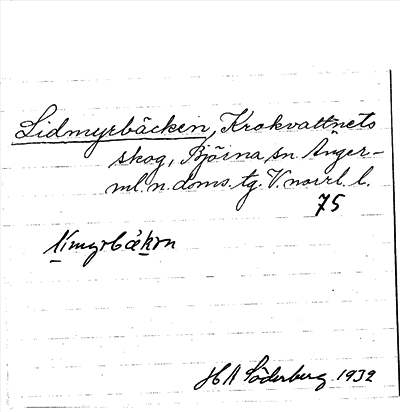 Lidmyrbäcken, Krokvattnets
skog, Björna sn. Ånger-
ml. n. doms. tg. V. norrl. l.
75
HA Söderberg 1932